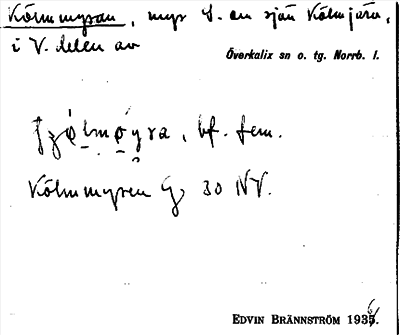 Kölmmyran, myr S. om sjön Kölmjärv,
i V. delen av
Överkalix sn o. tg. Norrb. l.
bf. fem.
Kölmmyren G 30 NV.
EDVIN BRÄNNSTRÖM 1936